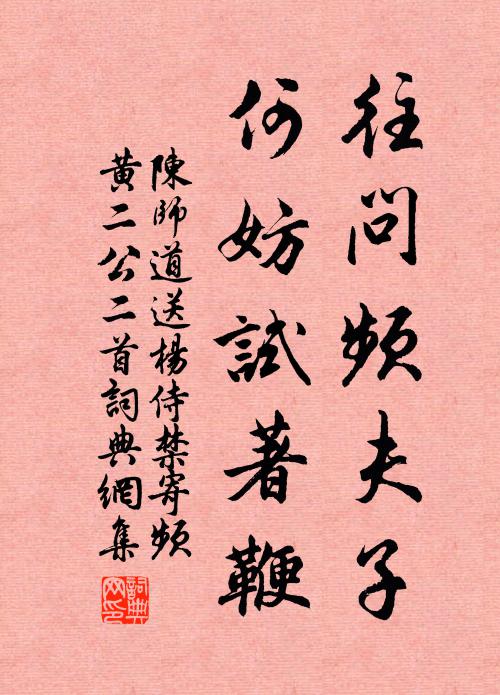 往問頻夫子
何妨試著鞭
陳師道送楊侍禁寄頻
黃二公二首詞典網集
詞典网印